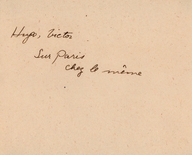 Hugo, Victor
Sur Paris
chez le même